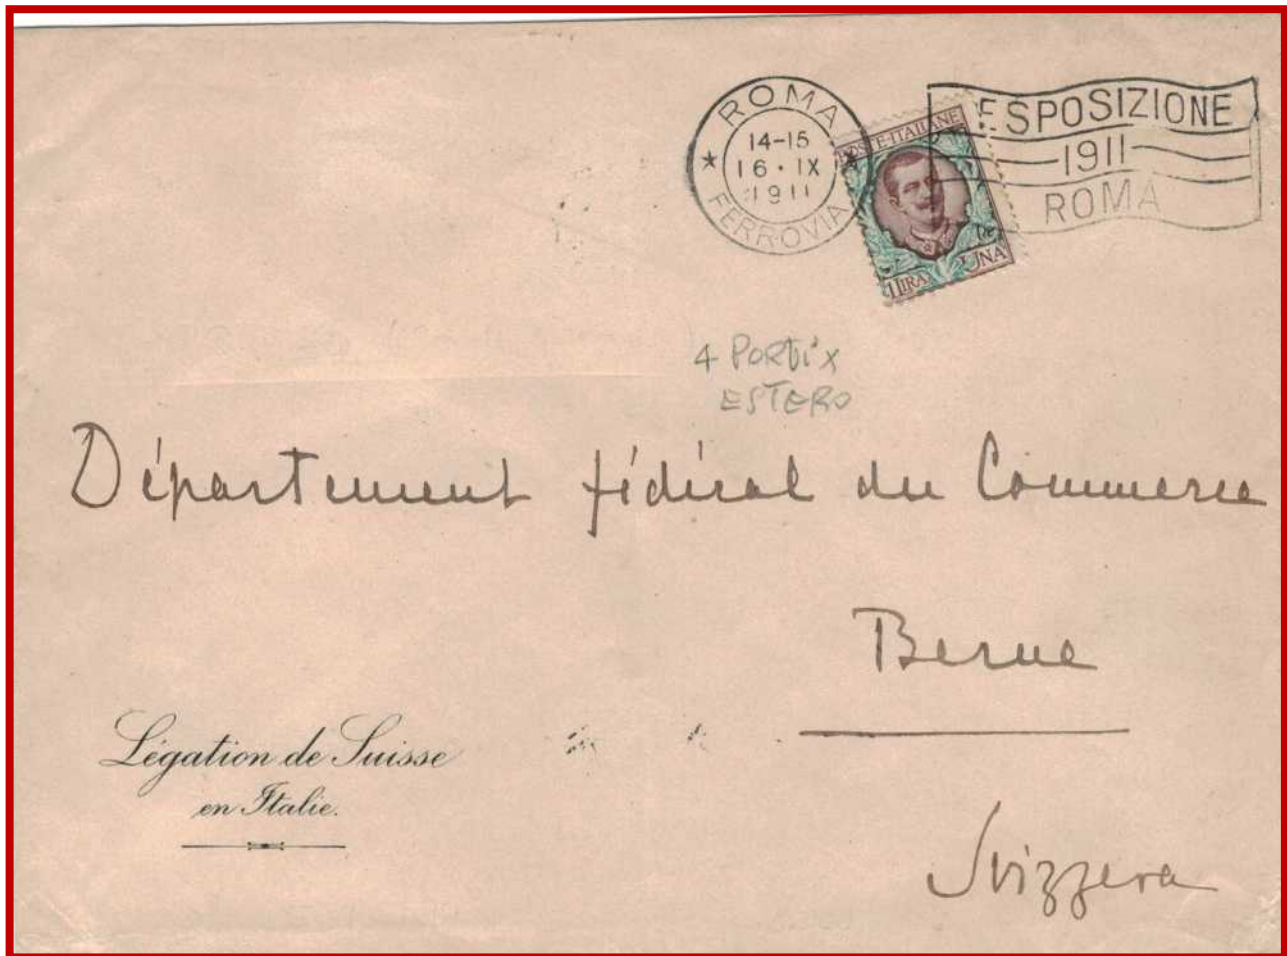 ROMA
14-15
16·IX
1911
FERROVIA
POSTE·ITALIANE
LIRA UNA
ESPOSIZIONE
1911
ROMA
4 PORTI X
ESTERO
Département fédéral du Commerce
Berne
Légation de Suisse
en Italie.
Svizzera